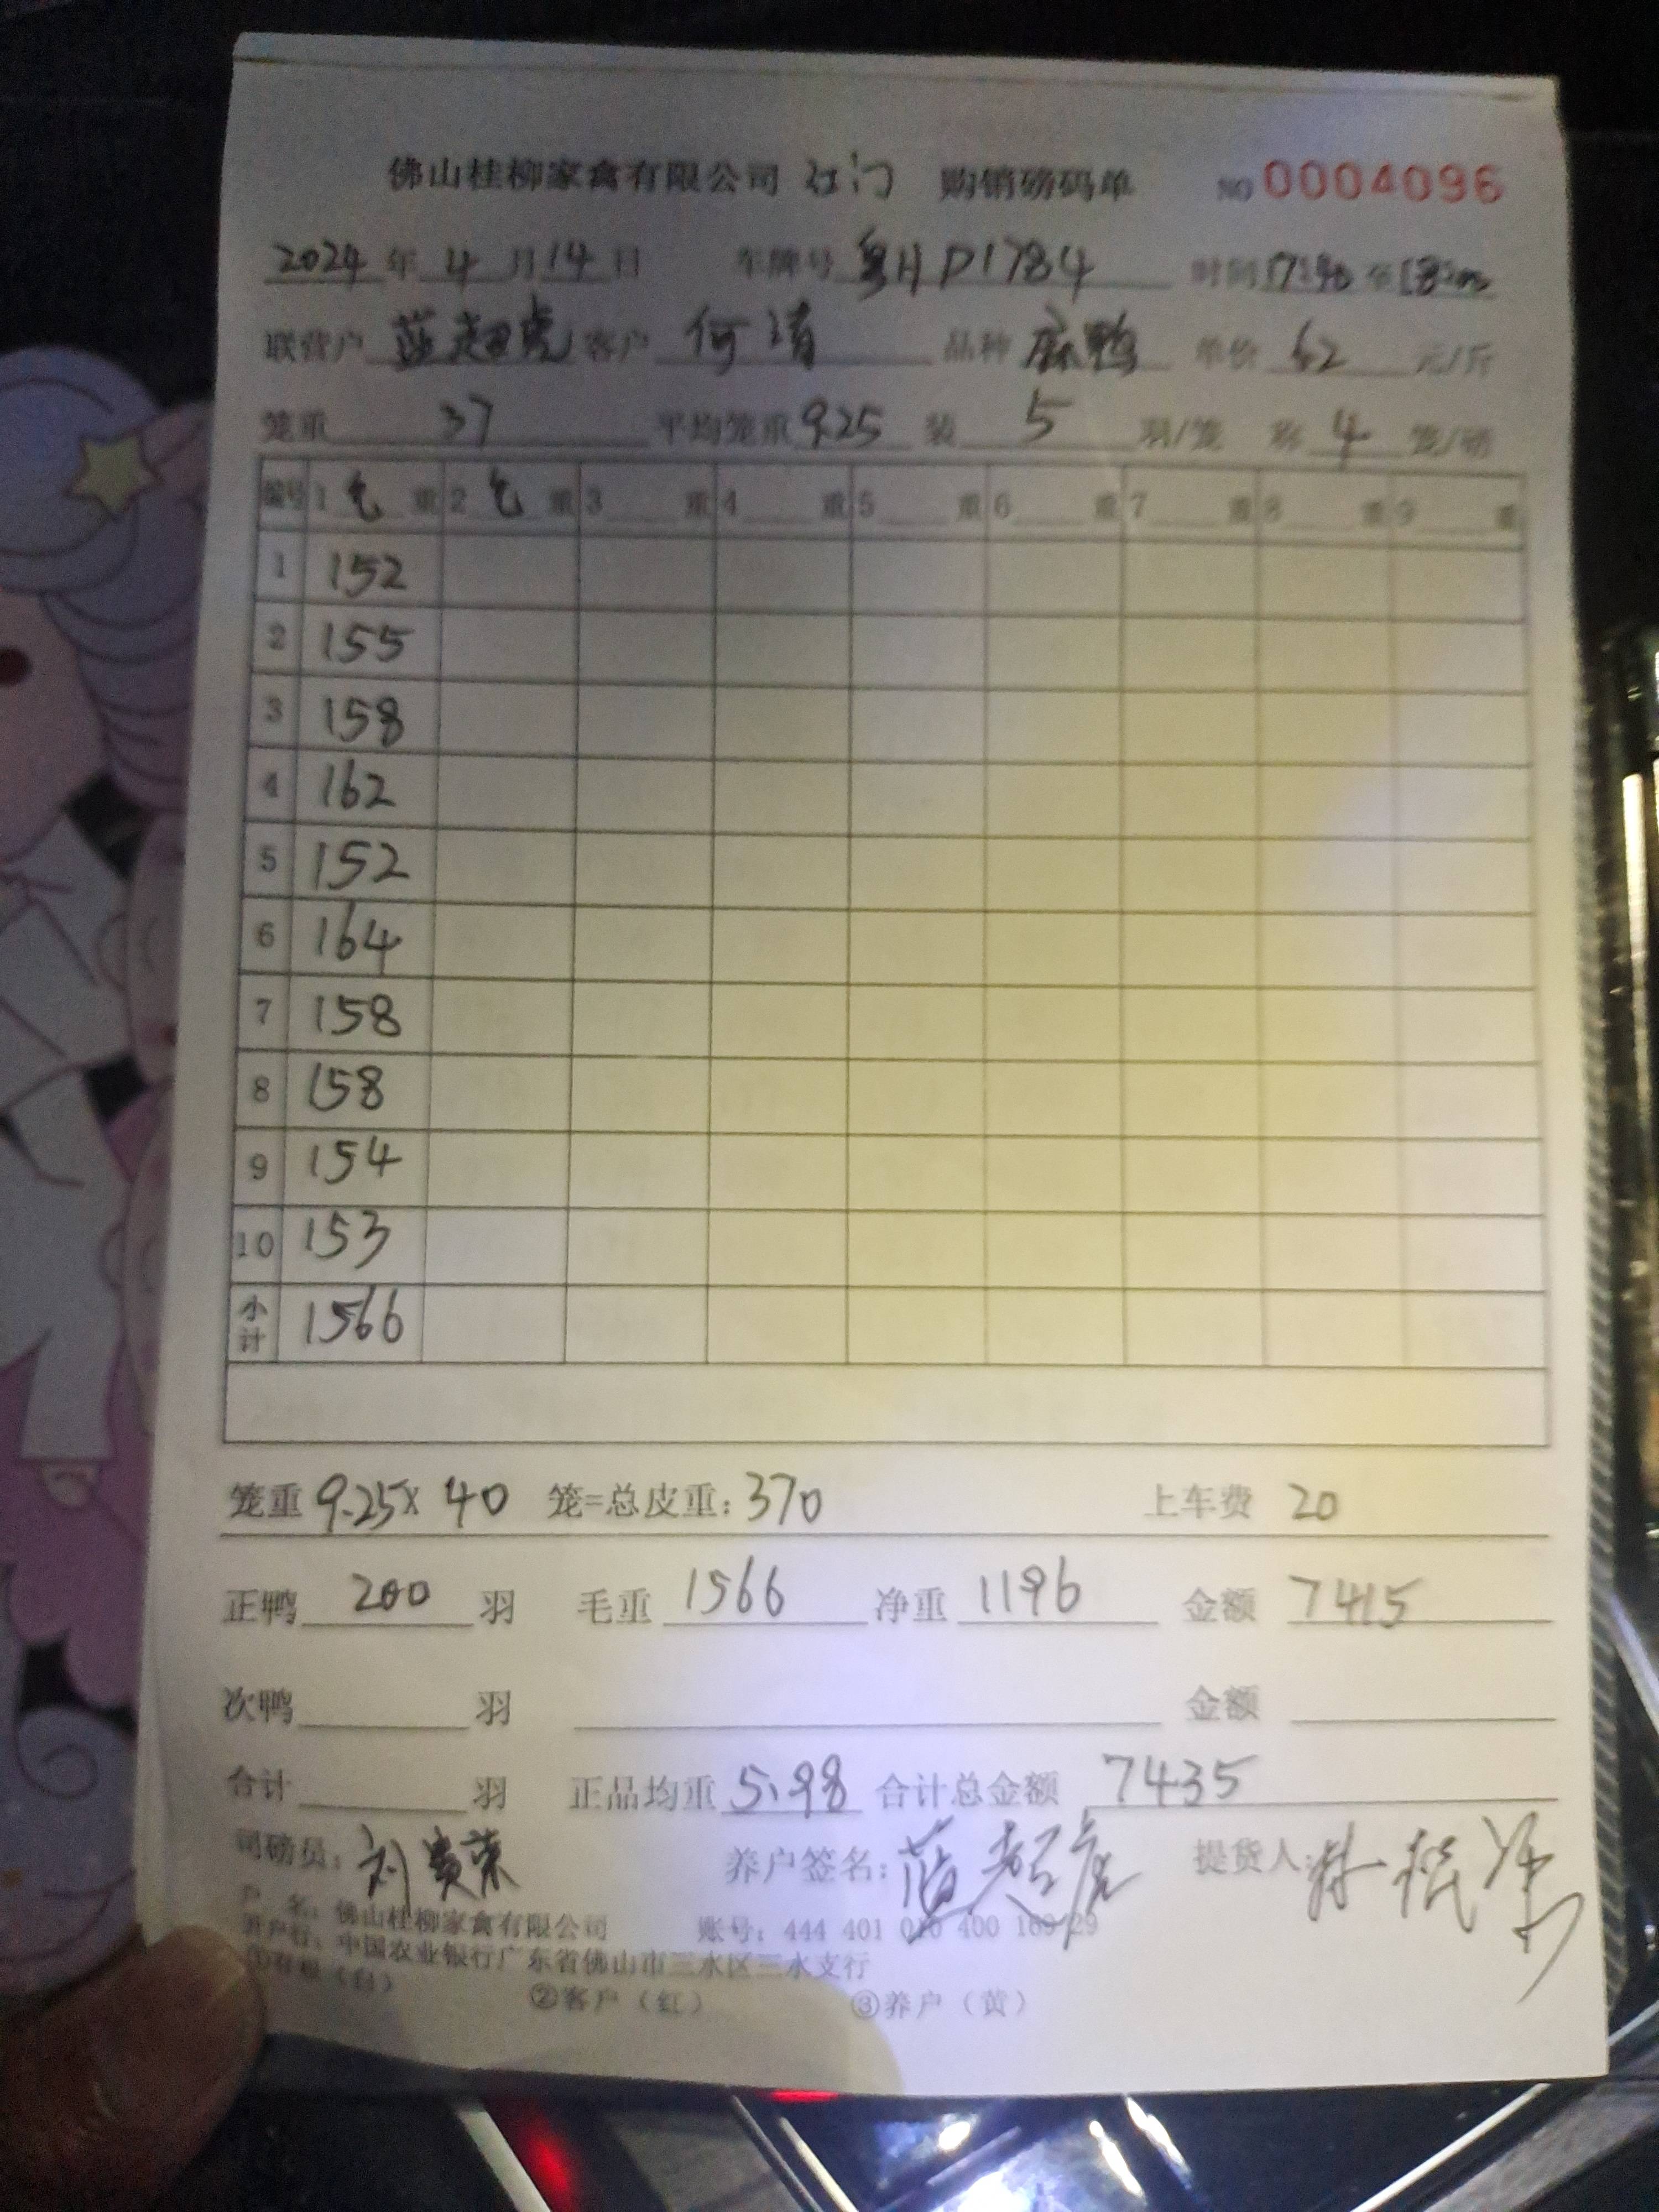 佛山桂柳家禽有限公司 江门 购销磅码单 NO 0004096
2024 年 4 月 14 日 车牌号 粤H D1784 时间 17:40 至 18:00
联营户 蓝超虎 客户 何清 品种 麻鸭 单价 6.2 元/斤
笼重 37 平均笼重 9.25 装 5 羽/笼 称 4 笼/磅
编号 1 毛 重 2 毛 重 3 重 4 重 5 重 6 重 7 重 8 重 9 重
1 152
2 155
3 158
4 162
5 152
6 164
7 158
8 158
9 154
10 153
小计 1566
笼重 9.25 X 40 笼=总皮重: 370 上车费 20
正鸭 200 羽 毛重 1566 净重 1196 金额 7415
次鸭 羽 金额
合计 羽 正品均重 5.98 合计总金额 7435
司磅员: 刘贵荣 养户签名: 蓝超虎 提货人:
户 名: 佛山桂柳家禽有限公司 账号: 444 401 010 400 169 29
开户行: 中国农业银行广东省佛山市三水区三水支行
①存根（白） ②客户（红） ③养户（黄）